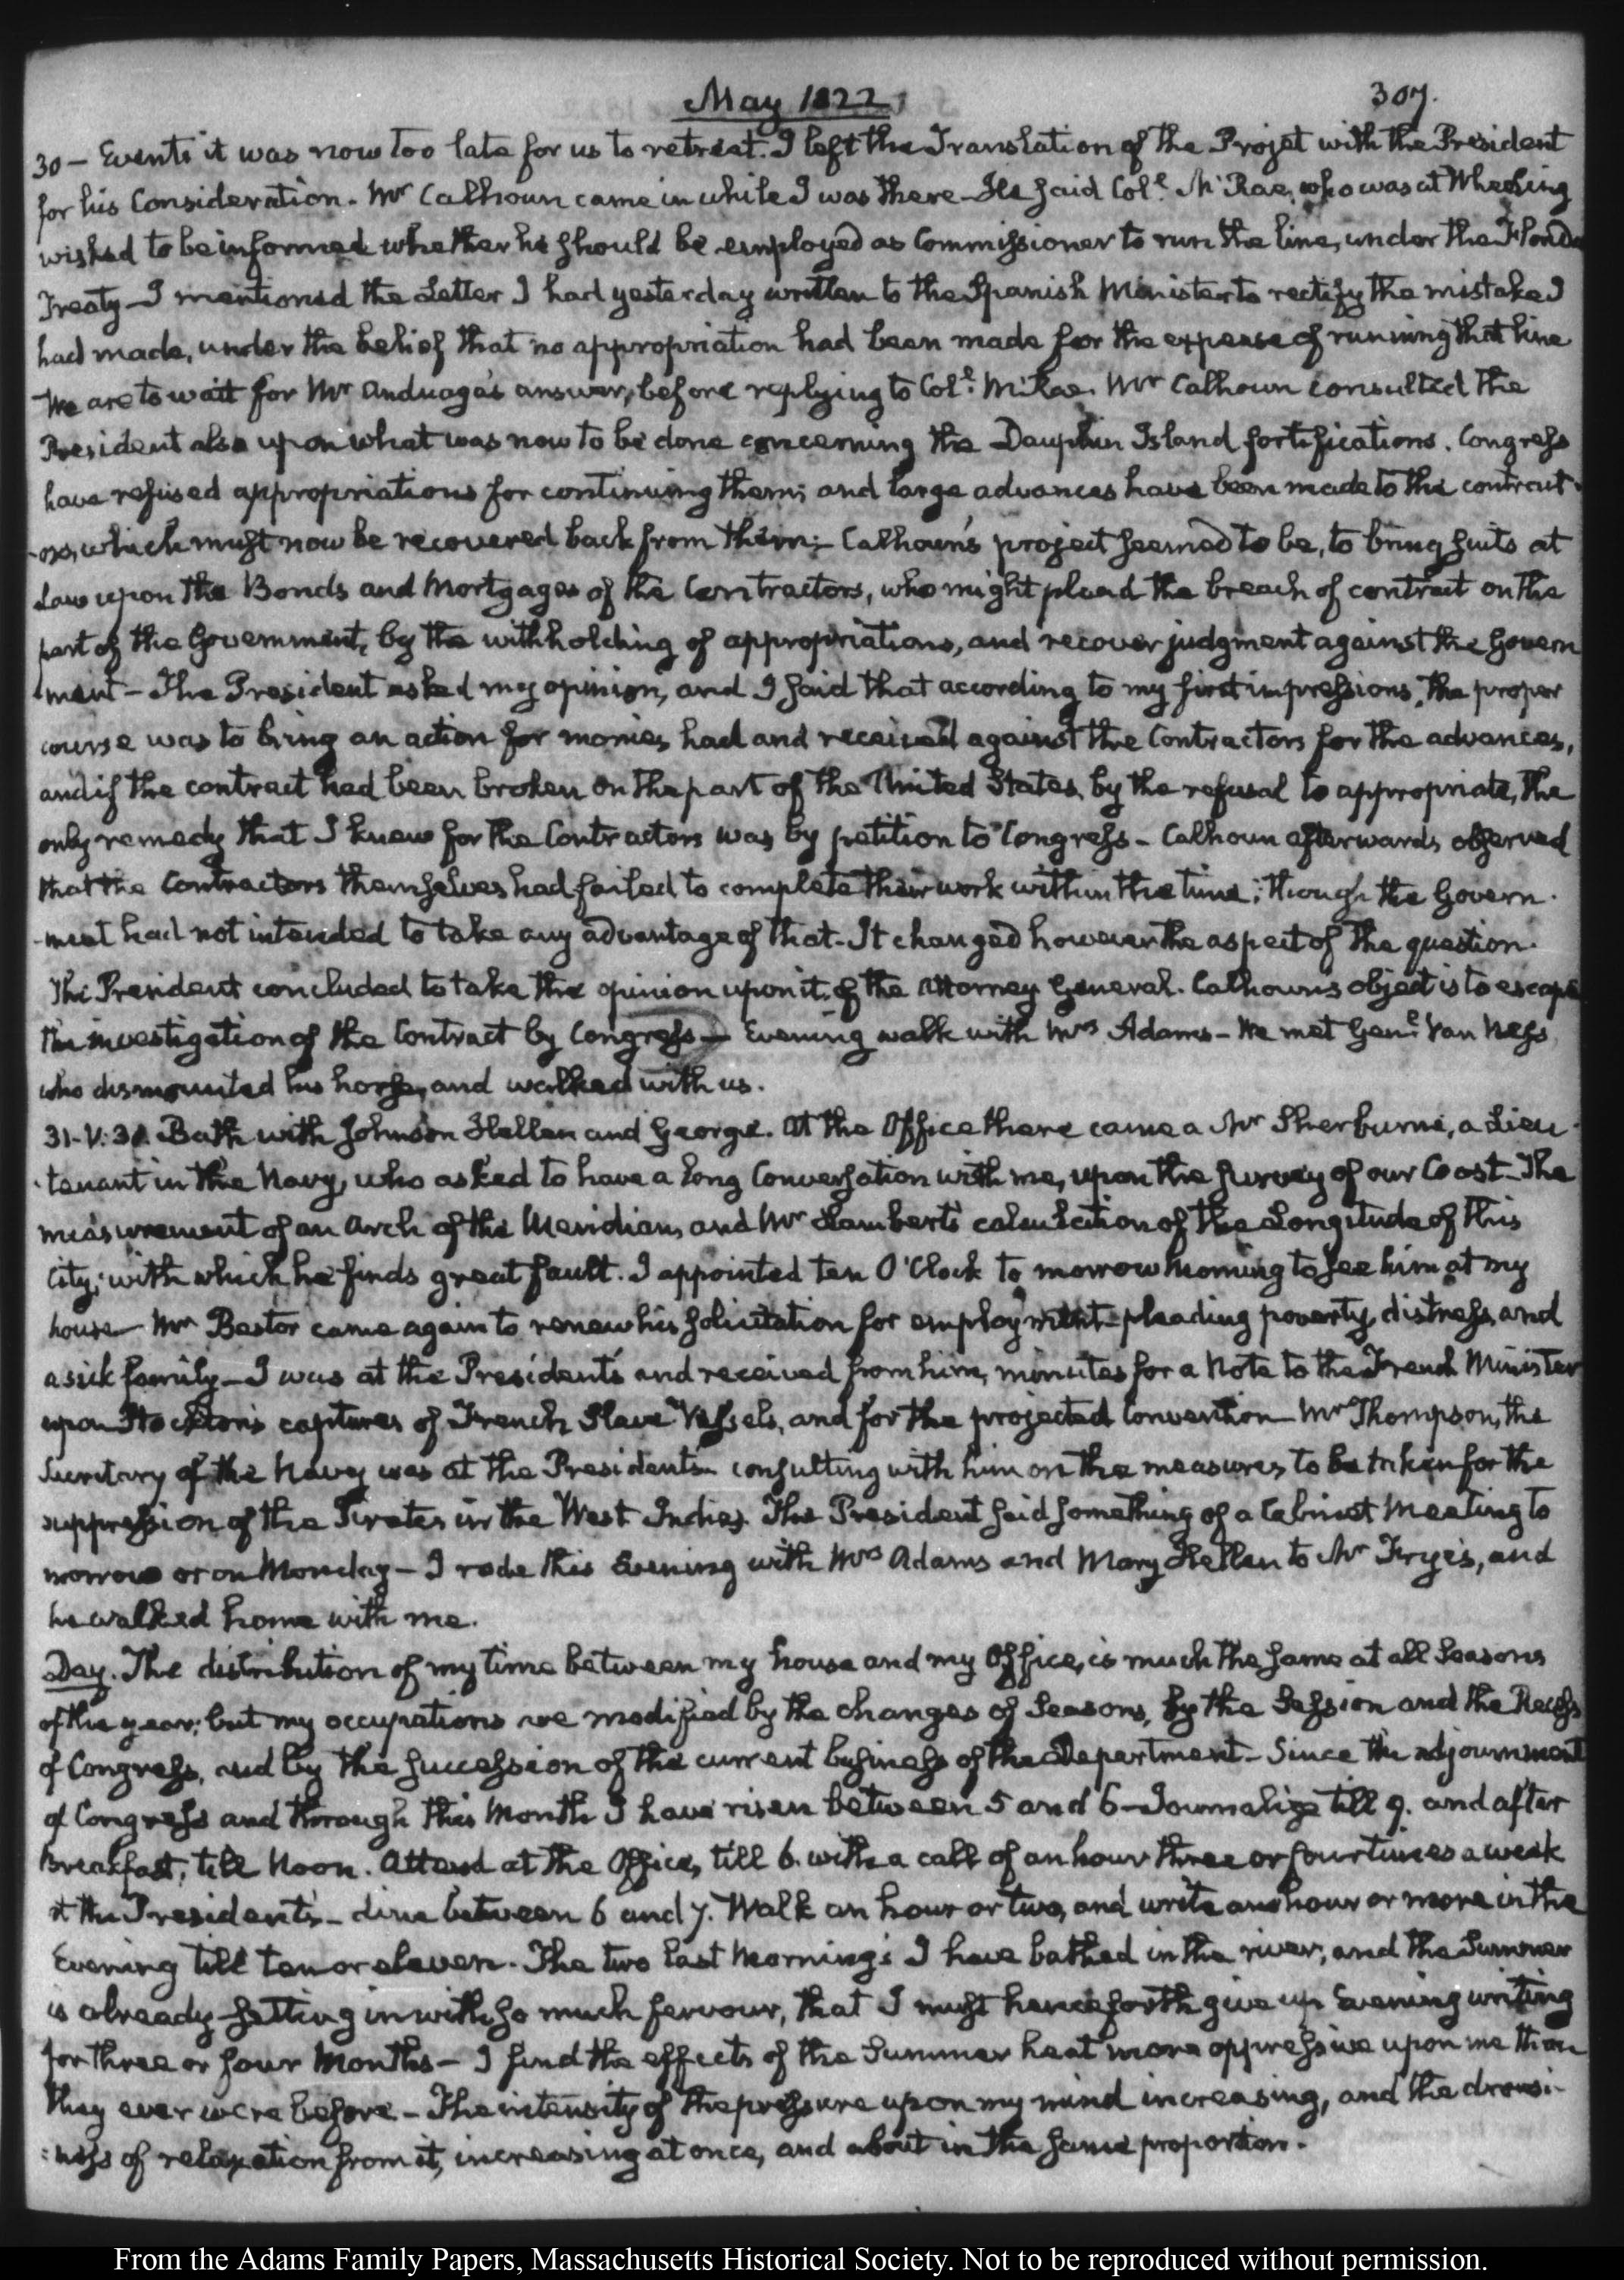 May 1822
307.
30 — Events it was now too late for us to retreat. I left the Translation of the Projet with the President
for his Consideration. Mr Calhoun came in while I was there — He said Coll. McRae, who was at Wheeling
wished to be informed whether he should be employed as Commissioner to run the line, under the Florida
Treaty — I mentioned the Letter I had yesterday written to the Spanish Minister to rectify the mistake I
had made, under the belief that no appropriation had been made for the expense of running that line
We are to wait for Mr Anduaga's answer, before replying to Coll. McRae. Mr Calhoun consulted the
President also upon what was now to be done concerning the Dauphin Island fortifications. Congress
have refused appropriations for continuing them; and large advances have been made to the contract-
-ors, which must now be recovered back from them; Calhoun's project seemed to be, to bring suits at
Law upon the Bonds and Mortgages of the Contractors, who might plead the breach of contract on the
part of the Government, by the withholding of appropriations, and recover judgment against the Govern
-ment — The President asked my opinion, and I said that according to my first impressions, the proper
course was to bring an action for monies had and received against the Contractors for the advances,
and if the contract had been broken on the part of the United States, by the refusal to appropriate, the
only remedy that I knew for the Contractors was by petition to Congress — Calhoun afterwards observed
that the Contractors themselves had failed to complete their work within the time; though the Govern-
-ment had not intended to take any advantage of that — It changed however the aspect of the question.
The President concluded to take the opinion upon it, of the Attorney General. Calhoun's object is to escape
the investigation of the Contract by Congress — Evening walk with Mrs Adams — We met Genl. Van Ness
who dismounted his horse, and walked with us.
31 - V:30. Bath with Johnson Hellen and George. At the Office there came a Mr Sherburne, a Lieu-
-tenant in the Navy, who asked to have a long Conversation with me, upon the survey of our Coast — The
measurement of an Arch of the Meridian, and Mr Lambert's calculation of the Longitude of this
City; with which he finds great fault. I appointed ten O'Clock to morrow morning to see him at my
house — Mr Bestor came again to renew his solicitation for employment — pleading poverty, distress, and
a sick family — I was at the President's and received from him, minutes for a Note to the French Minister
upon Stockton's captures of French Slave Vessels, and for the projected Convention — Mr Thompson, the
Secretary of the Navy was at the President's — consulting with him on the measures to be taken for the
suppression of the Pirates in the West Indies. The President said something of a Cabinet Meeting to
morrow or on Monday — I rode this Evening with Mrs Adams and Mary Hellen to Mr Frye's, and
he walked home with me.
Day. The distribution of my time between my house and my Office, is much the same at all Seasons
of the year; but my occupations are modified by the changes of Seasons, by the Session and the Recess
of Congress, and by the succession of the current business of the Department — Since the adjournment
of Congress and through this Month I have risen between 5 and 6 — Journalize till 9. and after
Breakfast, till Noon. Attend at the Office, till 6. with a call of an hour three or four times a week
at the President's — dine between 6 and 7. Walk an hour or two, and write an hour or more in the
Evening till ten or eleven. The two last Mornings I have bathed in the river, and the Summer
is already setting in with so much fervour, that I must henceforth give up Evening writing
for three or four Months — I find the effects of the Summer heat more oppressive upon me than
they ever were before — The intensity of the pressure upon my mind increasing, and the drowsi-
-ness of relaxation from it, increasing at once, and about in the same proportion.
From the Adams Family Papers, Massachusetts Historical Society. Not to be reproduced without permission.